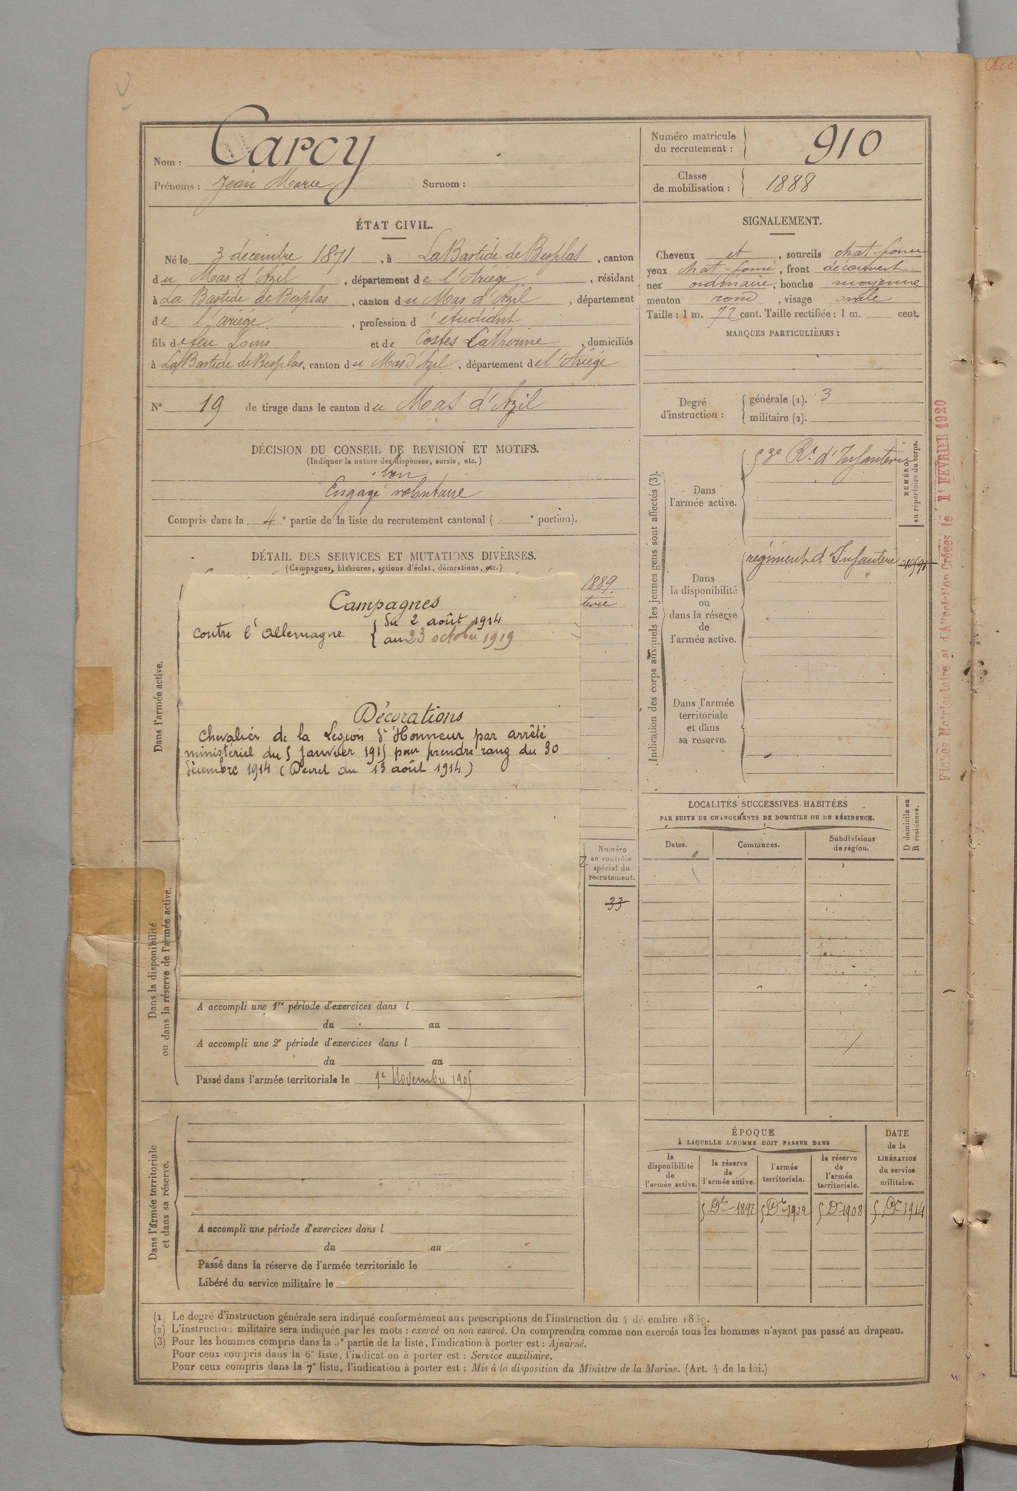 Nom : Carcy
Prénoms : Jean Marie Surnom :
Numéro matricule
du recrutement : 910
Classe
de mobilisation : 1888
ÉTAT CIVIL.
Né le 3 décembre 1871, à LaBastide de Besplas, canton
du Mas d'Azil, département de l'Ariège, résidant
à La Bastide de Besplas, canton du Mas d'Azil, département
de l'ariège, profession d'étudiant
fils de feu Louis et de Costes Catherine, domiciliés
à LaBastide de Besplas, canton du Mas d'Azil, département de l'Ariège
N° 19 de tirage dans le canton du Mas d'Azil
SIGNALEMENT.
Cheveux et, sourcils chat-foncé
yeux chat-foncé, front découvert
nez ordinaire, bouche moyenne
menton rond, visage ovale
Taille : 1 m. 72 cent. Taille rectifiée : 1 m. cent.
MARQUES PARTICULIÈRES :
Degré
d'instruction :
générale (1). 3
militaire (2).
DÉCISION DU CONSEIL DE REVISION ET MOTIFS.
(Indiquer la nature des dispenses, sursis, etc.)
bon
Engagé volontaire
Compris dans la 4e partie de la liste du recrutement cantonal ( e portion).
DÉTAIL DES SERVICES ET MUTATIONS DIVERSES.
(Campagnes, blessures, actions d'éclat, décorations, etc.)
1889
Campagnes
contre l'Allemagne
du 2 août 1914
au 23 octobre 1919
Décorations
Chevalier de la Légion d'Honneur par arrêté
ministériel du 5 Janvier 1915 pour prendre rang du 30
décembre 1914 (Décret du 13 août 1914)
Dans l'armée active.
Dans la disponibilité
ou dans la réserve de l'armée active.
Numéro
au contrôle
spécial du
recrutement.
33
A accompli une 1re période d'exercices dans l
du au
A accompli une 2e période d'exercices dans l
du au
Passé dans l'armée territoriale le 1er Novembre 1905
Dans l'armée territoriale
et dans sa réserve.
A accompli une période d'exercices dans l
du au
Passé dans la réserve de l'armée territoriale le
Libéré du service militaire le
Indication des corps auxquels les jeunes gens sont affectés (3).
Dans
l'armée active.
Rt d'Infanterie
NUMÉRO
au répertoire du corps.
Dans
la disponibilité
ou
dans la réserve
de
l'armée active.
régiment d'Infanterie
Dans l'armée
territoriale
et dans
sa réserve.
LOCALITÉS SUCCESSIVES HABITÉES
PAR SUITE DE CHANGEMENTS DE DOMICILE OU DE RÉSIDENCE.
Dates.
Communes.
Subdivisions
de région.
D domicile ou
R résidence.
ÉPOQUE
À LAQUELLE L'HOMME DOIT PASSER DANS
la
disponibilité
de
l'armée active.
la réserve
de
l'armée active.
l'armée
territoriale.
la réserve
de
l'armée
territoriale.
DATE
de la
LIBÉRATION
du service
militaire.
Fiches Matriculaires et d'Affectation Créées le 1er FÉVRIER 1920
(1) Le degré d'instruction générale sera indiqué conformément aux prescriptions de l'instruction du 4 décembre
(2) L'instruction militaire sera indiquée par les mots : exercé ou non exercé. On comprendra comme non exercés tous les hommes n'ayant pas passé au drapeau.
(3) Pour les hommes compris dans la 5e partie de la liste, l'indication à porter est : Ajourné.
Pour ceux compris dans la 6e liste, l'indication à porter est : Service auxiliaire.
Pour ceux compris dans la 7e liste, l'indication à porter est : Mis à la disposition du Ministre de la Marine. (Art. 4 de la loi.)